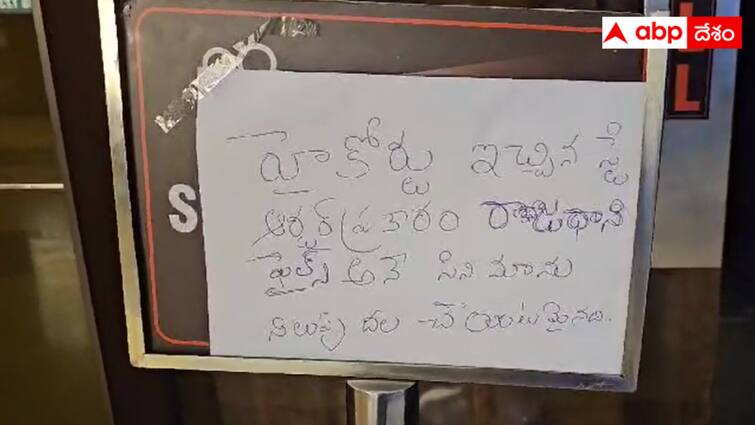 abp దేశం
L
S
హైకోర్టు ఇచ్చిన స్టే
ఆర్డర్ ప్రకారం రాజధాని
ఫైల్స్ అనే సినిమాను
నిలుపు దల చేయటమైనది.